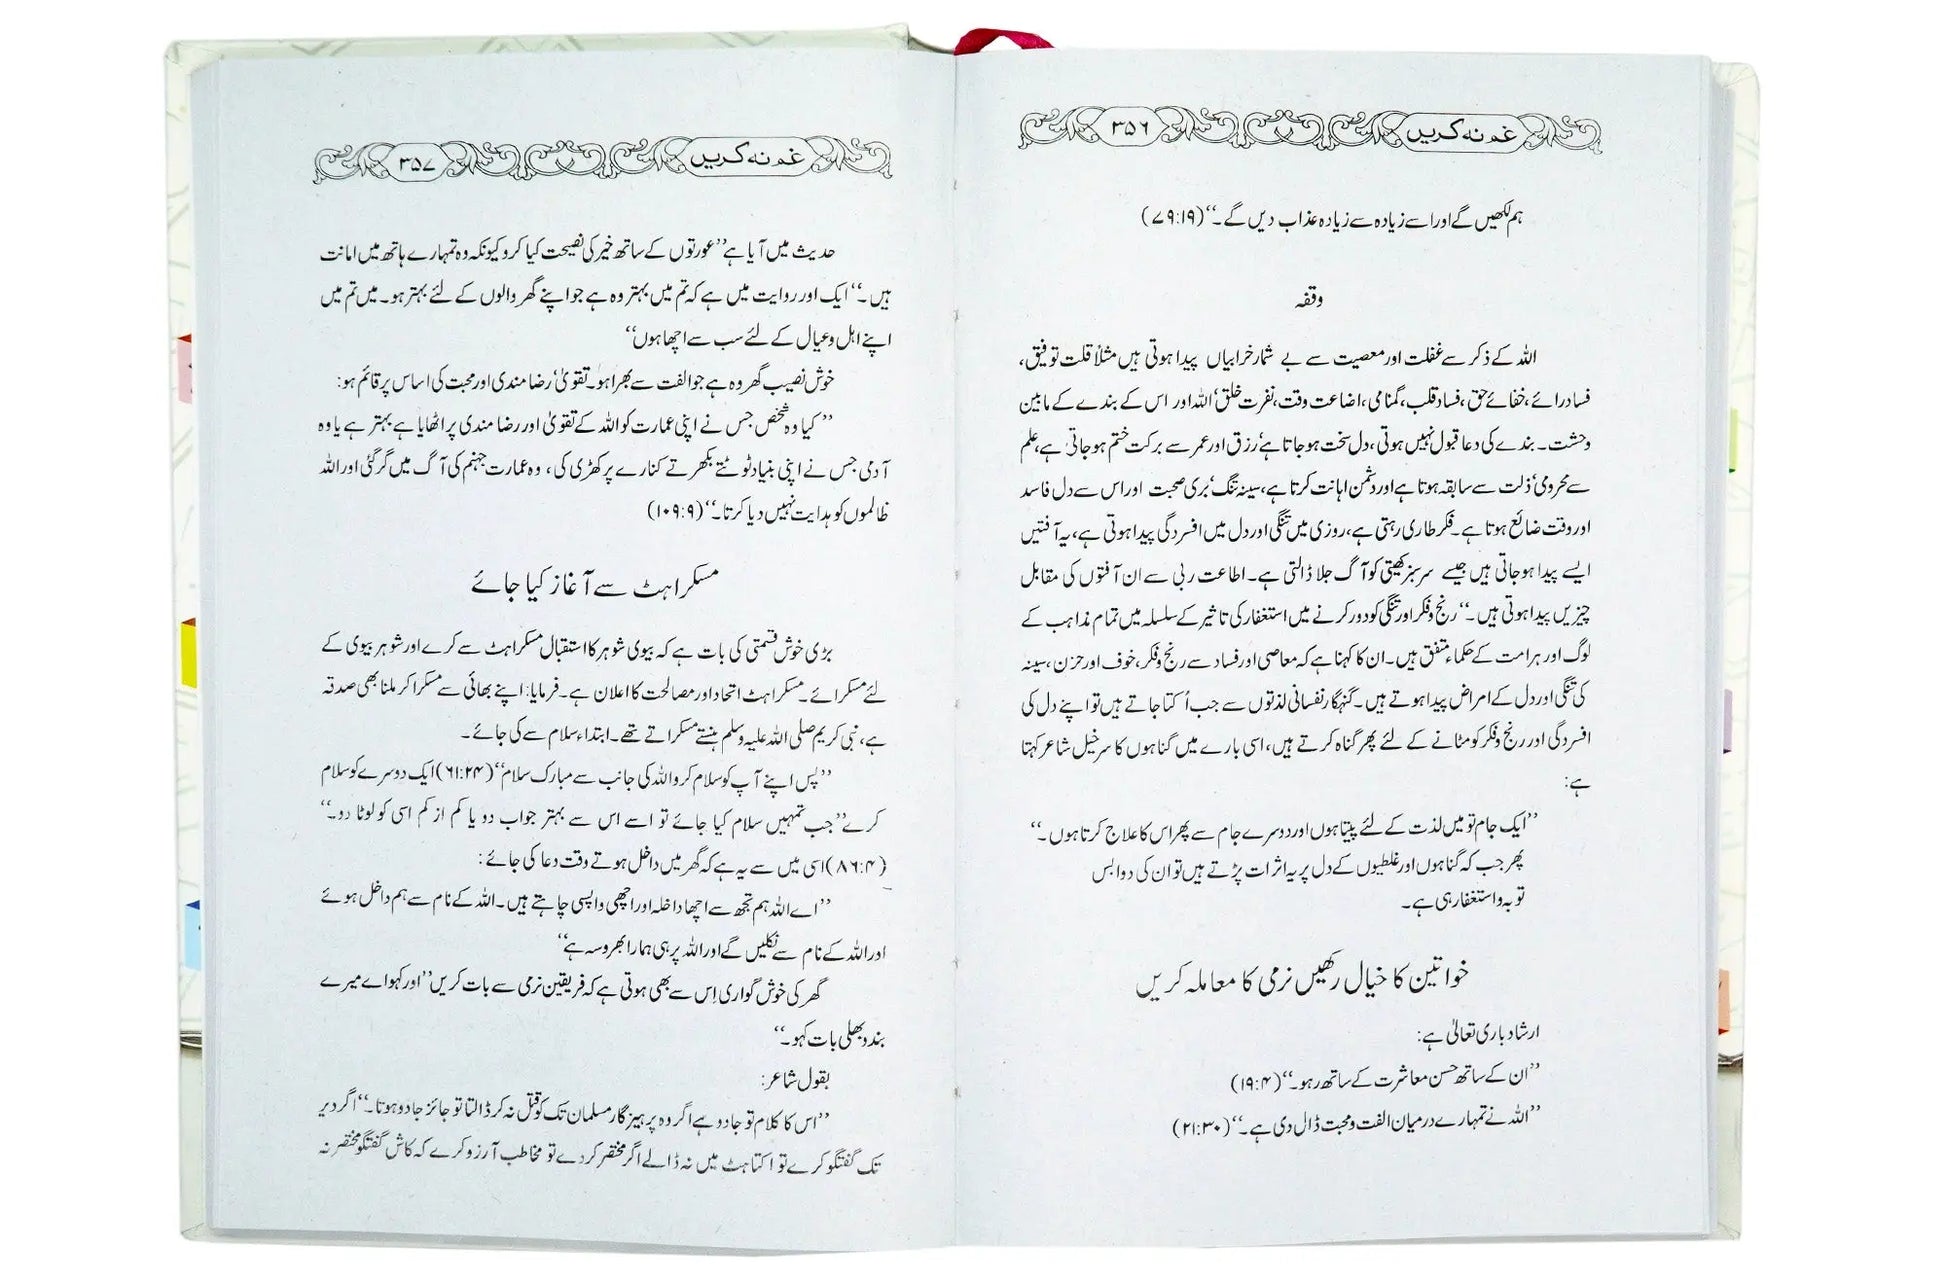 غم نہ کریں ۳۵۶
ہم لکھیں گے اور اسے زیادہ سے زیادہ عذاب دیں گے۔‘‘ (۷۹:۱۹)
وقفہ
اللہ کے ذکر سے غفلت اور معصیت سے بے شمار خرابیاں پیدا ہوتی ہیں مثلاً قلت توفیق،
فساد رائے، خفائے حق، فساد قلب، گمنامی، اضاعت وقت، نفرت خلق‘ اللہ اور اس کے بندے کے مابین
وحشت۔ بندے کی دعا قبول نہیں ہوتی، دل سخت ہو جاتا ہے‘ رزق اور عمر سے برکت ختم ہو جاتی ہے، علم
سے محرومی‘ ذلت سے سابقہ ہوتا ہے اور دشمن اہانت کرتا ہے، سینہ تنگ‘ بری صحبت اور اس سے دل فاسد
اور وقت ضائع ہوتا ہے۔ فکر طاری رہتی ہے، روزی میں تنگی اور دل میں افسردگی پیدا ہوتی ہے، یہ آفتیں
ایسے پیدا ہو جاتی ہیں جیسے سرسبز کھیتی کو آگ جلا ڈالتی ہے۔ اطاعت ربی سے ان آفتوں کی مقابل
چیزیں پیدا ہوتی ہیں۔‘‘ رنج و فکر اور تنگی کو دور کرنے میں استغفار کی تاثیر کے سلسلہ میں تمام مذاہب کے
لوگ اور ہر امت کے حکماء متفق ہیں۔ ان کا کہنا ہے کہ معاصی اور فساد سے رنج و فکر، خوف اور حزن، سینہ
کی تنگی اور دل کے امراض پیدا ہوتے ہیں۔ گنہگار نفسانی لذتوں سے جب اُکتا جاتے ہیں تو اپنے دل کی
افسردگی اور رنج و فکر کو مٹانے کے لئے پھر گناہ کرتے ہیں، اسی بارے میں گناہوں کا سرخیل شاعر کہتا
ہے:
’’ایک جام تو میں لذت کے لئے پیتا ہوں اور دوسرے جام سے پھر اس کا علاج کرتا ہوں۔‘‘
پھر جب کہ گناہوں اور غلطیوں کے دل پر یہ اثرات پڑتے ہیں تو ان کی دوا بس
توبہ و استغفار ہی ہے۔
خواتین کا خیال رکھیں نرمی کا معاملہ کریں
ارشاد باری تعالیٰ ہے:
’’ان کے ساتھ حسن معاشرت کے ساتھ رہو۔‘‘ (۱۹:۴)
’’اللہ نے تمہارے درمیان الفت و محبت ڈال دی ہے۔‘‘ (۲۱:۳۰)
غم نہ کریں ۳۵۷
حدیث میں آیا ہے ’’عورتوں کے ساتھ خیر کی نصیحت کیا کرو کیونکہ وہ تمہارے ہاتھ میں امانت
ہیں۔‘‘ ایک اور روایت میں ہے کہ تم میں بہتر وہ ہے جو اپنے گھر والوں کے لئے بہتر ہو۔ میں تم میں
اپنے اہل و عیال کے لئے سب سے اچھا ہوں‘‘
خوش نصیب گھر وہ ہے جو الفت سے بھرا ہو۔ تقویٰ‘ رضا مندی اور محبت کی اساس پر قائم ہو:
’’کیا وہ شخص جس نے اپنی عمارت کو اللہ کے تقویٰ اور رضا مندی پر اٹھایا ہے بہتر ہے یا وہ
آدمی جس نے اپنی بنیاد ٹوٹتے بکھرتے کنارے پر کھڑی کی، وہ عمارت جہنم کی آگ میں گر گئی اور اللہ
ظالموں کو ہدایت نہیں دیا کرتا۔‘‘ (۱۰۹:۹)
مسکراہٹ سے آغاز کیا جائے
بڑی خوش قسمتی کی بات ہے کہ بیوی شوہر کا استقبال مسکراہٹ سے کرے اور شوہر بیوی کے
لئے مسکرائے۔ مسکراہٹ اتحاد اور مصالحت کا اعلان ہے۔ فرمایا: اپنے بھائی سے مسکرا کر ملنا بھی صدقہ
ہے، نبی کریم صلی اللہ علیہ وسلم ہنستے مسکراتے تھے۔ ابتداء سلام سے کی جائے۔
’’پس اپنے آپ کو سلام کرو اللہ کی جانب سے مبارک سلام‘‘ (۶۱:۲۴) ایک دوسرے کو سلام
کرے ’’جب تمہیں سلام کیا جائے تو اسے اس سے بہتر جواب دو یا کم از کم اسی کو لوٹا دو۔‘‘
(۸۶:۴) اسی میں سے یہ ہے کہ گھر میں داخل ہوتے وقت دعا کی جائے:
’’اے اللہ ہم تجھ سے اچھا داخلہ اور اچھی واپسی چاہتے ہیں۔ اللہ کے نام سے ہم داخل ہوئے
اور اللہ کے نام سے نکلیں گے اور اللہ پر ہی ہمارا بھروسہ ہے‘‘
گھر کی خوش گواری اِس سے بھی ہوتی ہے کہ فریقین نرمی سے بات کریں ’’اور کہو اے میرے
بندو بھلی بات کہو۔‘‘
بقول شاعر:
’’اس کا کلام تو جادو ہے اگر وہ پرہیزگار مسلمان تک کو قتل نہ کر ڈالتا تو جائز جادو ہوتا۔‘‘ اگر دیر
تک گفتگو کرے تو اکتاہٹ میں نہ ڈالے اگر مختصر کر دے تو مخاطب آرزو کرے کہ کاش گفتگو مختصر نہ